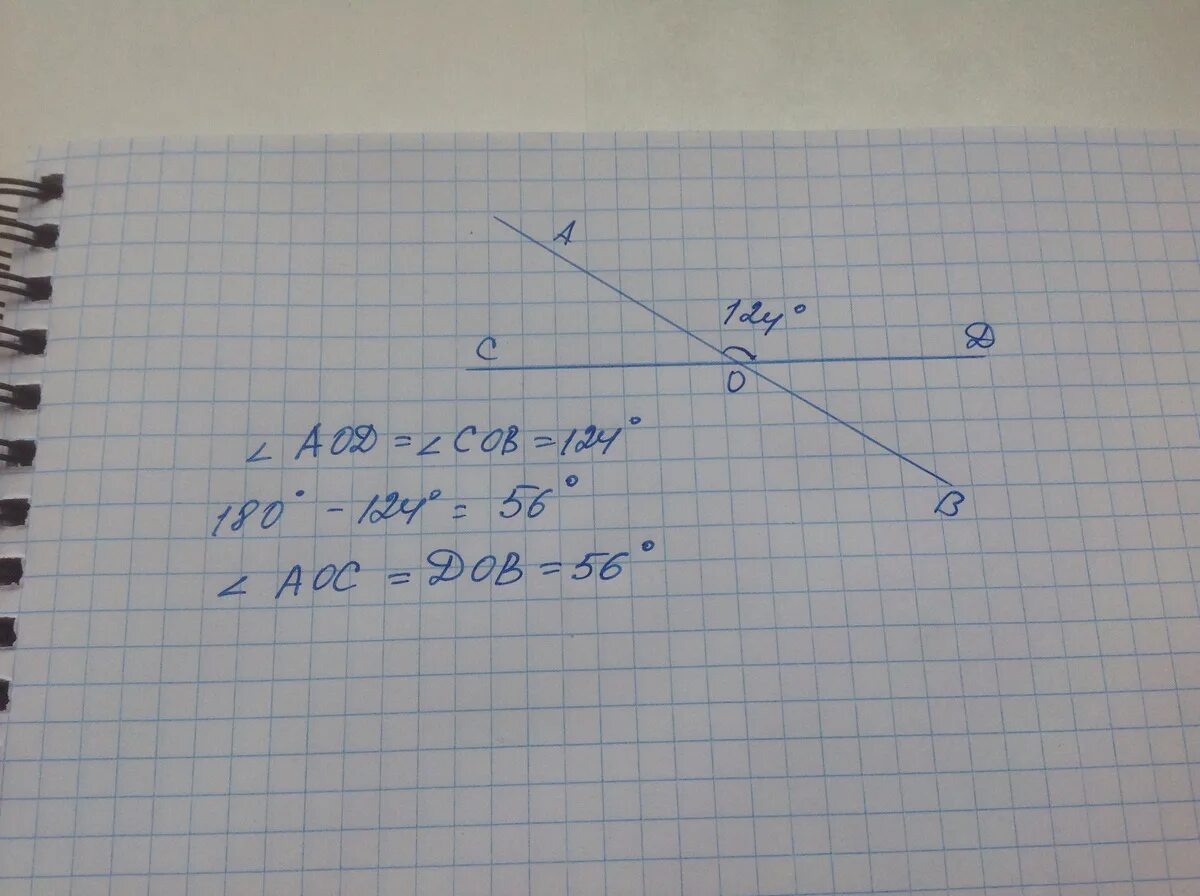 A
124°
C
D
O
B
∠ AOD = ∠ COB = 124°
180° - 124° = 56°
∠ AOC = DOB = 56°